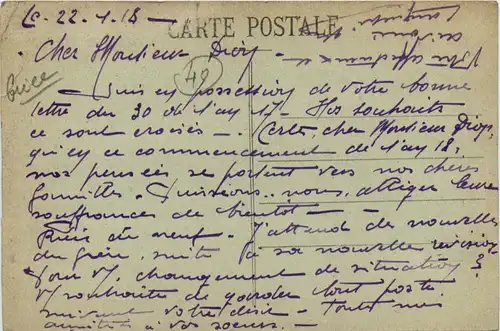 Le 22.1.18 —
CARTE POSTALE
Cher Monsieur Dion
49
Suis en possession de votre bonne
lettre du 30 de l'an 17. Nos souhaits
ce sont croisés. Certes, cher Monsieur Dion,
qu'en ce commencement de l'an 18,
nos pensées se portent vers nos chères
familles. Puissions-nous alléger leurs
souffrances de bientôt —
Rien de neuf. J'attend de nouvelles
du frère, suite à sa nouvelle révision
Pour V/ changement de situation ?
V/ souhaite de garder tout poste
suivant votre désir — Toutes mes
amitiés à vos soeurs. —